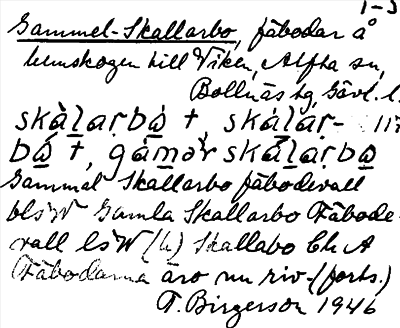 1-3
Gammel-Skallarbo, fäbodar å
hemskogen till Viken, Alfta sn,
Bollnäs tg, Gävl. l.
skàlaṛbò̱ †, skàlaṛ- 117
bò̱ †, gàmər skàlaṛbo̱
Gammel Skallarbo fäbodevall
blsW Gamla Skallarbo Fäbode-
vall lsW (h) Skallabo Ch A
Fäbodarna äro nu riv- (forts.)
T. Birgerson 1946